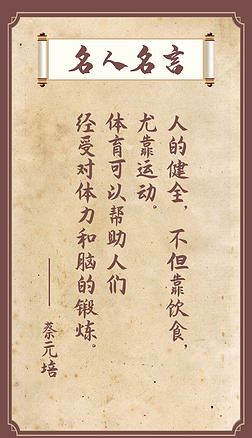 名人名言
人的健全，不但靠饮食，
尤靠运动。
体育可以帮助人们
经受对体力和脑的锻炼。
——蔡元培